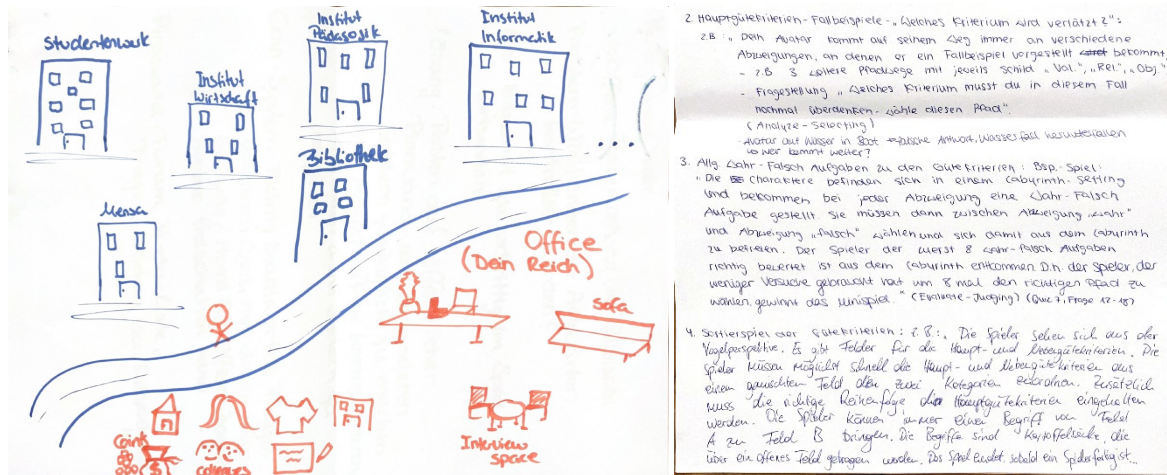 Studentenwerk
Institut
Wirtschaft
Institut
Pädagogik
Institut
Informatik
Bibliothek
Mensa
...
Office
(Dein Reich)
Sofa
Interview
space
Coins
$
collegues
2. Hauptgütekriterien - Fallbeispiele - "Welches Kriterium wird verletzt?":
z.B.: "Dein Avatar kommt auf seinem Weg immer an verschiedene
Abzweigungen, an denen er ein Fallbeispiel vorgestellt bekommt
- z.B 3 weitere Pfadwege mit jeweils Schild "Val.", "Rel.", "Obj."
- Fragestellung "Welches Kriterium musst du in diesem Fall
nochmal überdenken - wähle diesen Pfad".
(Analyze - Selecting)
- Avatar auf Wasser in Boot falsche Antwort, Wasserfall herunterfallen
wer kommt weiter?
3. Allg. Wahr - Falsch Aufgaben zu den Gütekriterien: Bsp. - Spiel:
"Die Charaktere befinden sich in einem Labyrinth - Setting
und bekommen bei jeder Abzweigung eine Wahr - Falsch
Aufgabe gestellt. Sie müssen dann zwischen Abzweigung "wahr"
und Abzweigung "falsch" wählen und sich damit aus dem Labyrinth
zu befreien. Der Spieler der zuerst 8 Wahr - falsch Aufgaben
richtig bewertet ist aus dem Labyrinth entkommen. D.h. der Spieler, der
weniger Versuche gebraucht hat um 8 mal den richtigen Pfad zu
wählen, gewinnt das Minispiel." (Evaluate - Judging) (Frage 12 - 18)
4. Sortierspiel der Gütekriterien: z.B.: "Die Spieler sehen sich aus der
Vogelperspektive. Es gibt Felder für die Haupt- und Nebengütekriterien. Die
Spieler müssen möglichst schnell die Haupt- und Nebengütekriterien aus
einem gemischten Feld den zwei Kategorien zuordnen. Zusätzlich
muss die richtige Reihenfolge der Hauptgütekriterien eingehalten
werden. Die Spieler können immer einen Begriff von Feld
A zu Feld B bringen. Die Begriffe sind Kartoffelsäcke, die
über ein offenes Feld getragen werden. Das Spiel endet, sobald ein Spieler fertig ist...